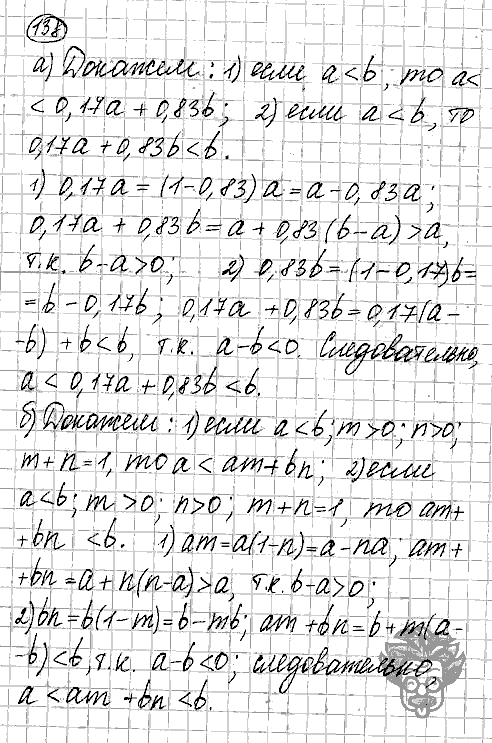 138
а) Докажем: 1) если a<b, то a<
<0,17a+0,83b; 2) если a<b, то
0,17a+0,83b<b.
1) 0,17a=(1-0,83)a=a-0,83a;
0,17a+0,83b=a+0,83(b-a)>a,
т.к. b-a>0; 2) 0,83b=(1-0,17)b=
=b-0,17b; 0,17a+0,83b=0,17(a-
-b)+b<b, т.к. a-b<0. Следовательно,
a<0,17a+0,83b<b.
б) Докажем: 1) если a<b; m>0; n>0;
m+n=1, то a<am+bn; 2) если
a<b; m>0; n>0; m+n=1, то am+
+bn <b. 1) am=a(1-n)=a-na; am+
+bn=a+n(n-a)>a, т.к. b-a>0;
2) bn=b(1-m)=b-mb; am+bn=b+m(a-
-b)<b, т.к. a-b<0; следовательно,
a<am+bn<b.